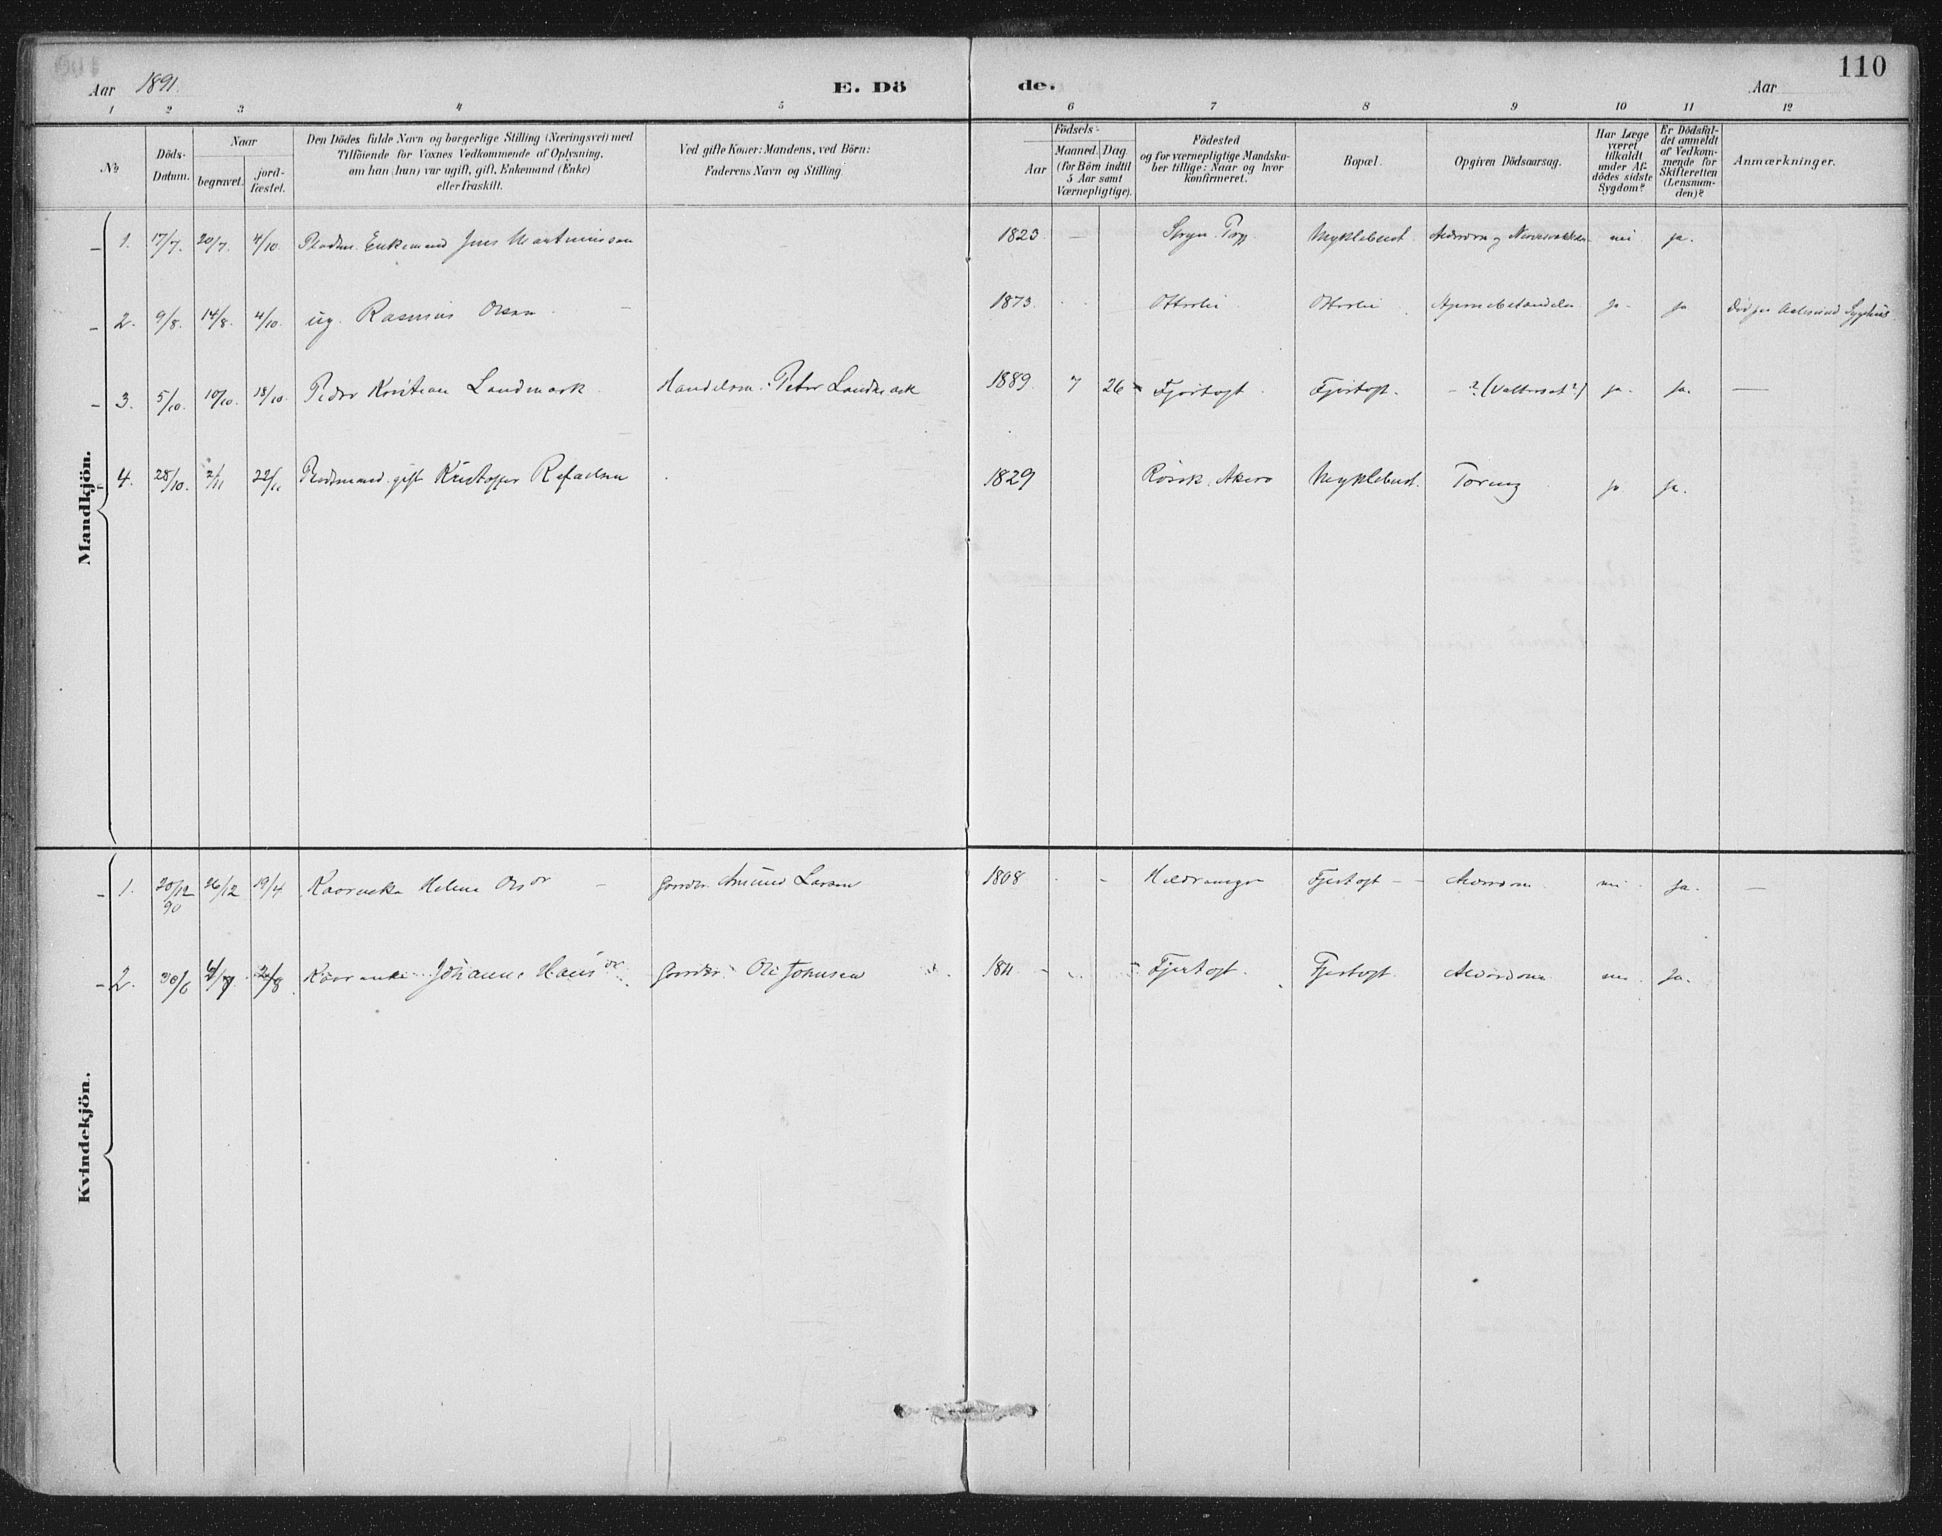 110
Aar 1891. E. Dö de. Aar
1 2 3 4 5 6 7 8 9 10 11 12
No
Döds-Datum.
Naar
begravet.
jord-fæstet.
Den Dödes fulde Navn og borgerlige Stilling (Næringsvei) med
Tilföiende for Voxnes Vedkommende af Oplysning,
om han (hun) var ugift, gift, Enkemand (Enke)
eller fraskilt.
Ved gifte Koner: Mandens, ved Börn:
Faderens Navn og Stilling
Födsels-
Aar
Maaned. Dag
(for Börn indtil
5 Aar samt
Værnepligtige).
Födested
og for værnepligtige Mandska-
ber tillige: Naar og hvor
konfirmeret.
Bopæl.
Opgiven Dödsaarsag.
Har Læge
været
tilkaldt
under Af-
dödes sidste
Sygdom?
Er Dödsfal-
det anmeldt
af Vedkom-
mende for
Skifteretten
(Lensman-
den)?
Anmærkninger.
Mandkjön.
1. 17/7. 20/7. 4/10. Enkemand Jens Martinussen 1823. — Myklebust. ja.
2. 9/8. 14/8. 4/10. ug. Rasmus Olsen 1873. Otterlei Otterlei ja ja Aalesund Sygehus
3. 5/10. 10/10. 18/10. Peder Kristian Landmark Handelsm. Peter Landmark 1889. 7 26 Fjørtoft Fjørtoft ? ja. ja. —
4. 28/10. 2/11 22/11 gift Kristoffer Rafaelsen 1829 Akerø Myklebust. Tæring ja ja.
Kvindekjön.
1. 20/12 90 26/12 19/4 Kaarenke Helene Olsdr Amund Larsen 1808. Hildrange Fjørtoft Alderdom ja. —
2. 30/6 Kaarenke Johanne Hansdr Ole Johnsen 1811. Fjørtoft. Fjørtoft. Alderdom ja.